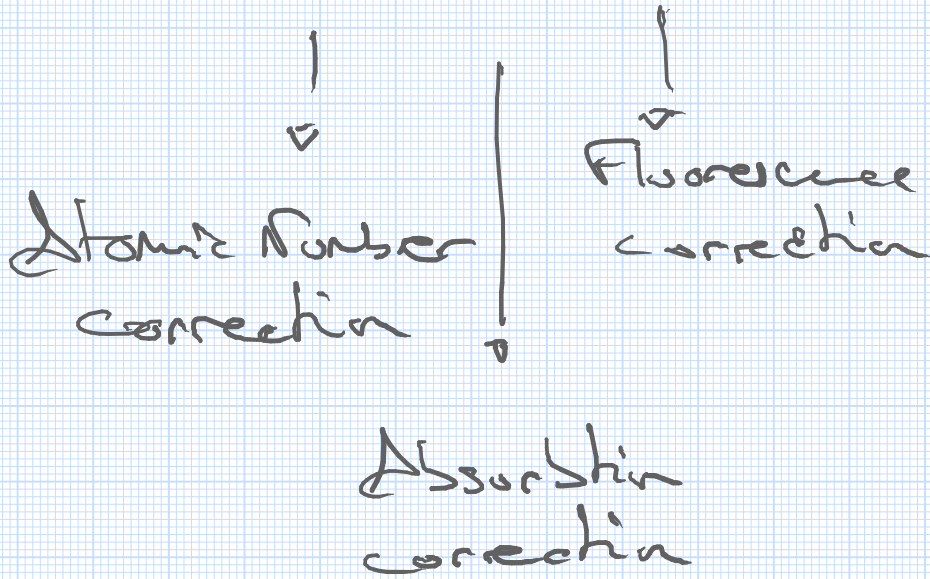 Atomic Number
correction
Fluorescence
correction
Absorbtion
correction